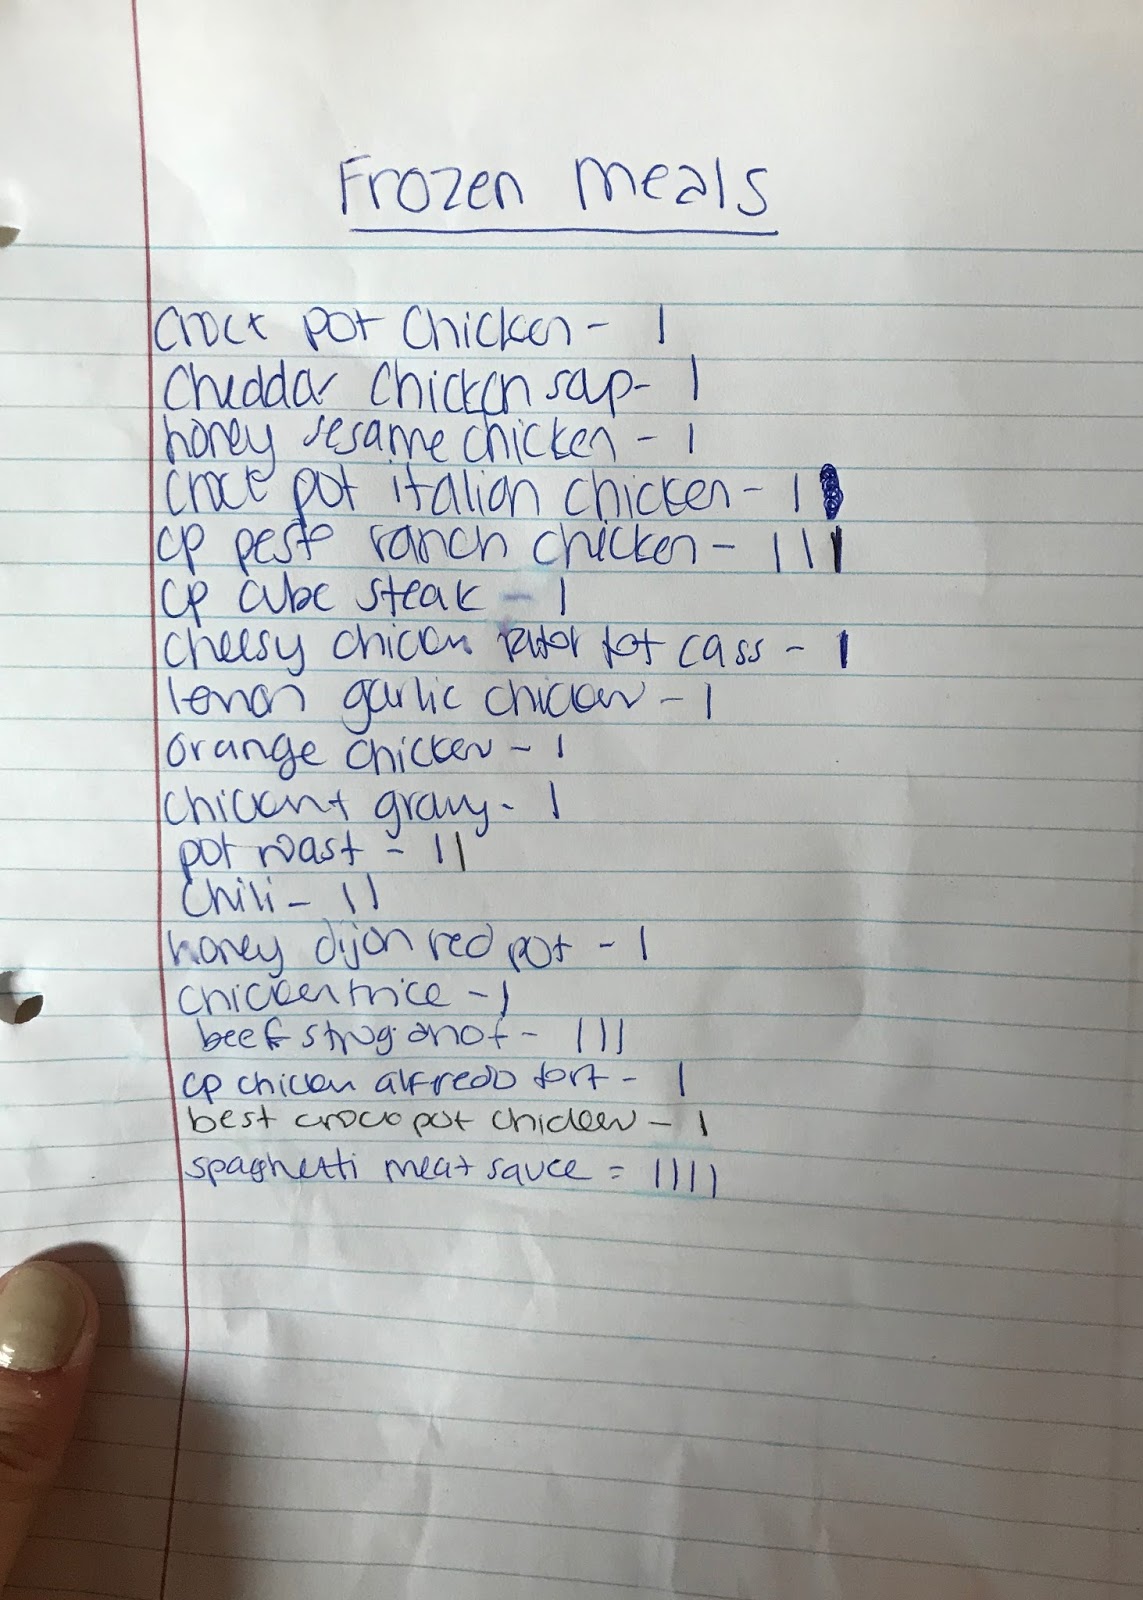 Frozen Meals
Crock pot Chicken - |
Cheddar Chicken soup - |
honey sesame chicken - |
crock pot italian chicken - |
cp pesto ranch chicken - |||
cp cube steak - |
cheesy chicken tator tot cass - |
lemon garlic chicken - |
orange chicken - |
chicken + gravy - |
pot roast - ||
Chili - ||
honey dijon red pot - |
chicken + rice - |
beef stroganof - |||
cp chicken alfredo tort - |
best crock pot chicken - |
spaghetti meat sauce = ||||